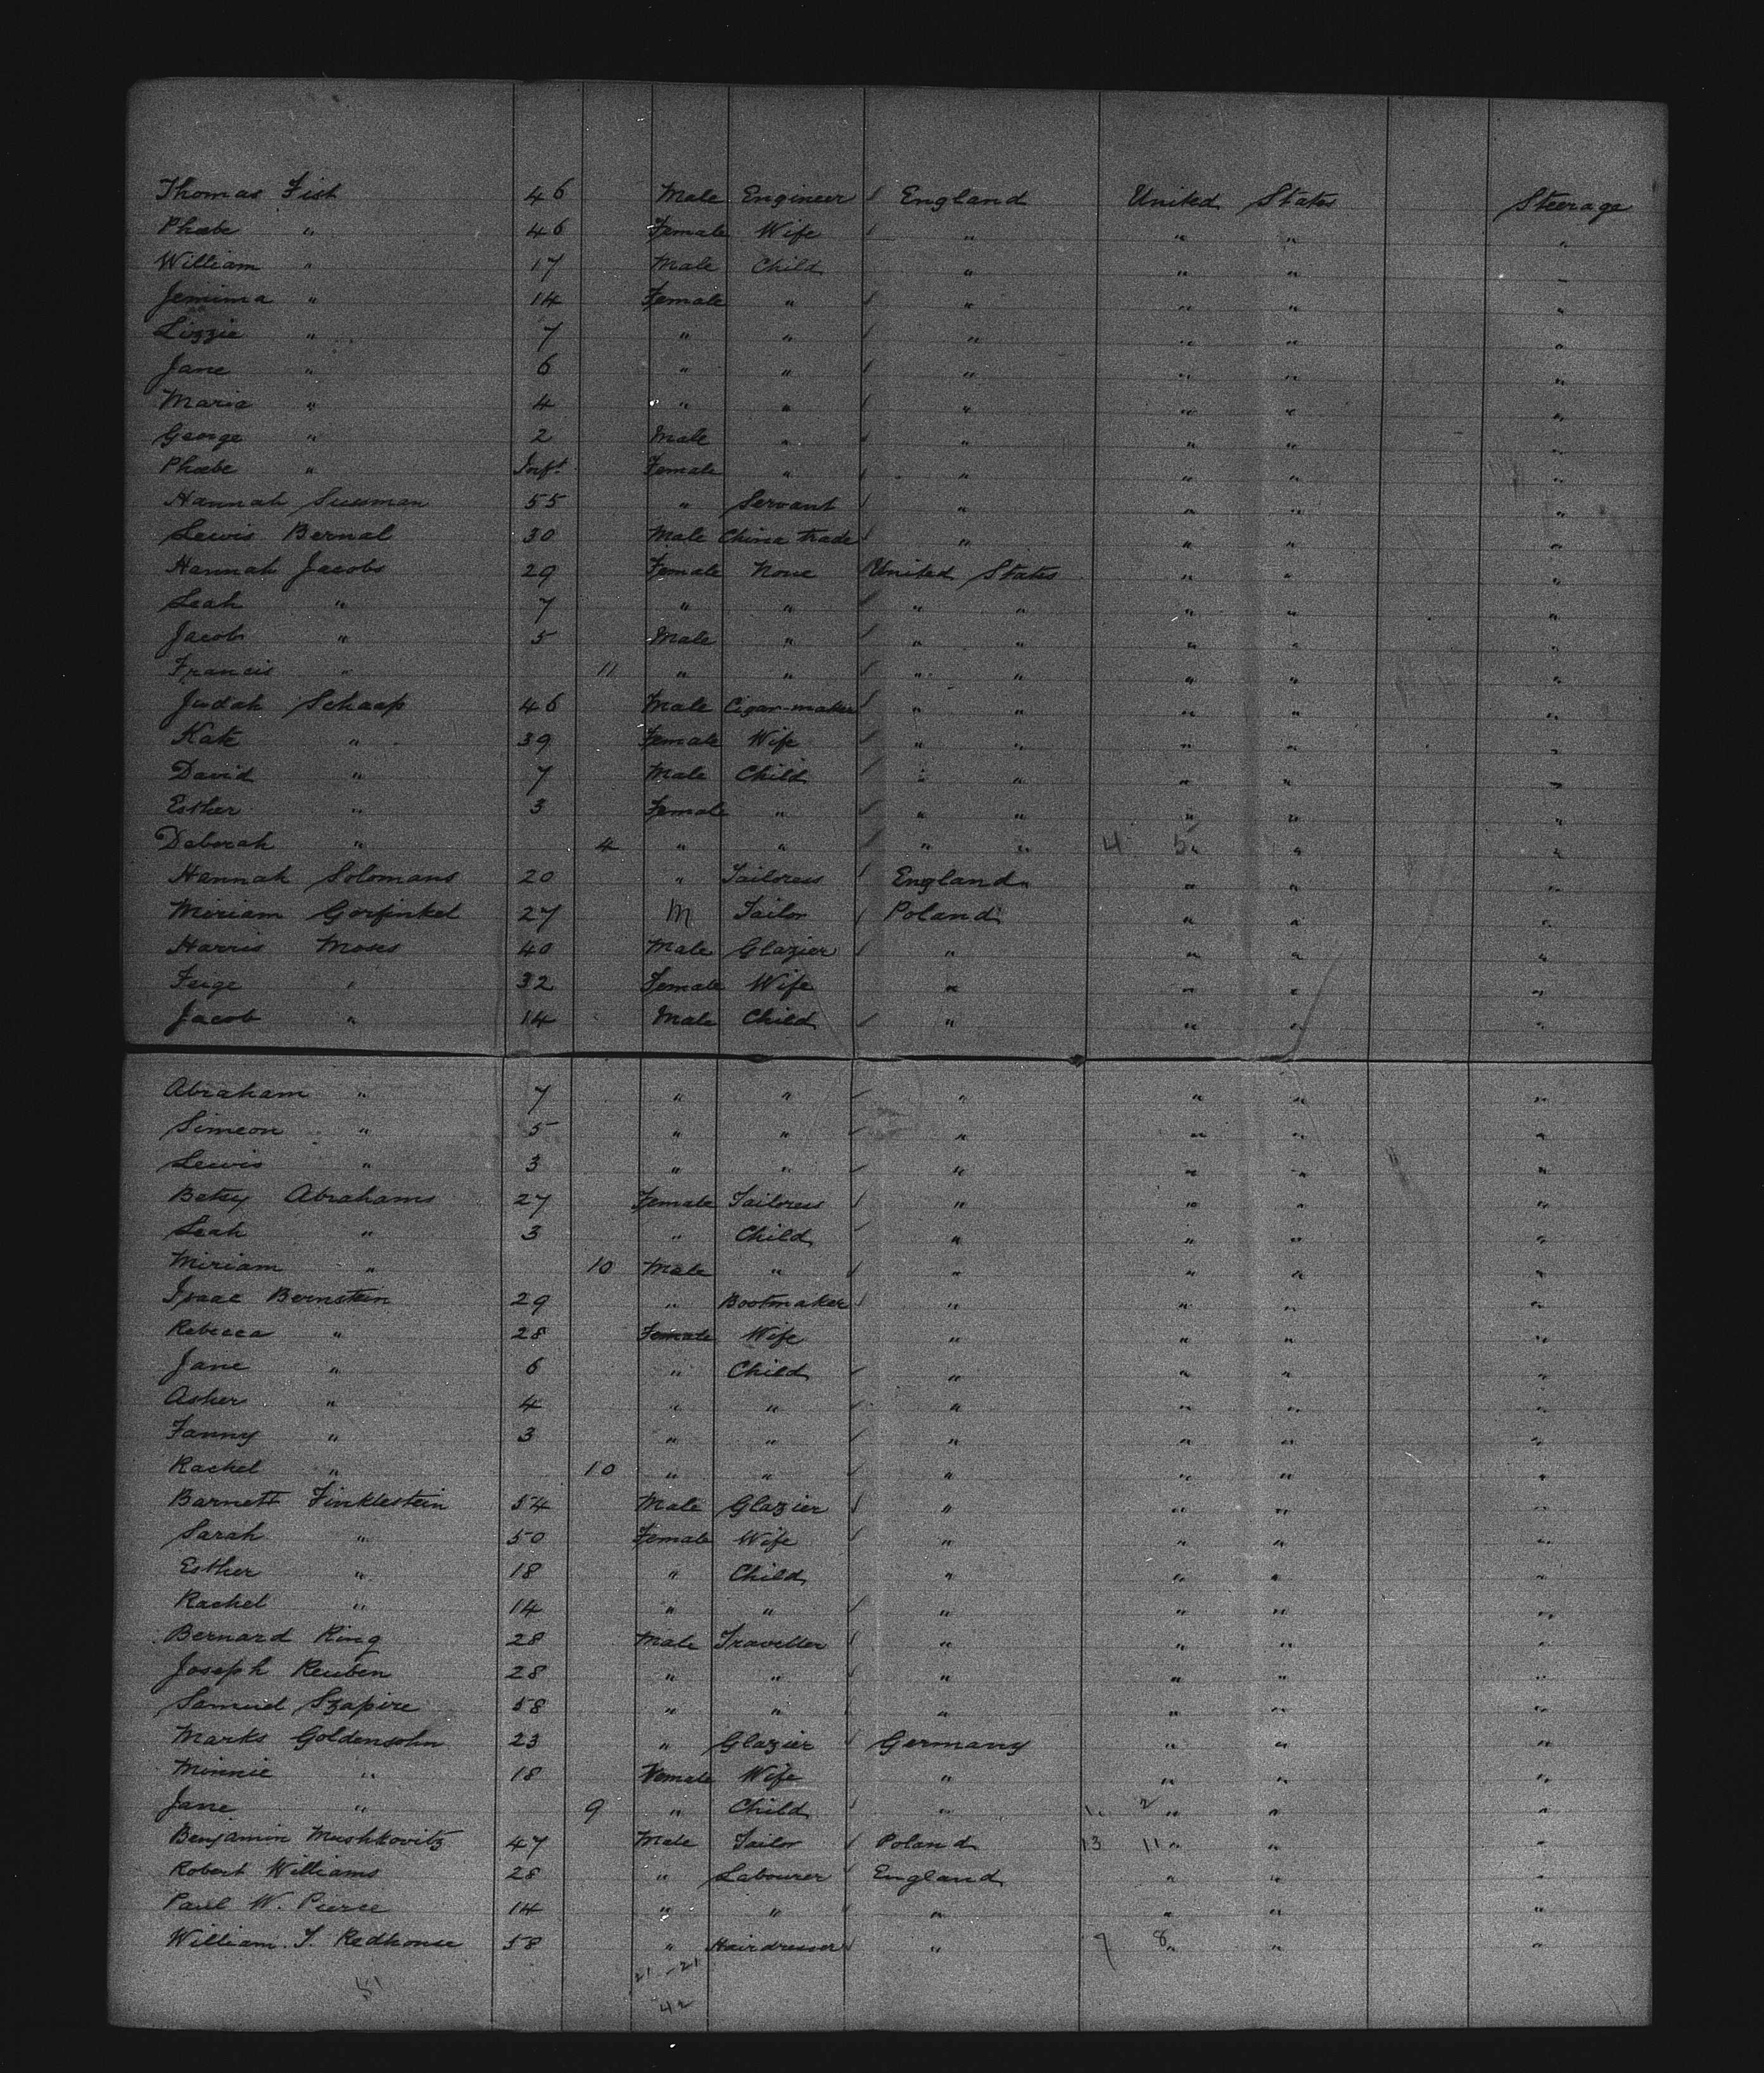 Thomas Fish 46 Male Engineer / England United States Steerage
Phœbe " 46 Female Wife / " " " "
William " 17 Male Child " " " "
Jemima " 14 Female " / " " " "
Lizzie " 7 " " / " " " "
Jane " 6 " " / " " " "
Maria " 4 " " / " " " "
George " 2 Male " / " " " "
Phœbe " Inft. Female " / " " " "
Hannah Sussman 55 " Servant / " " " "
Lewis Bernal 30 Male China trade / " " " "
Hannah Jacobs 29 Female None United States " " "
Leah " 7 " " / " " " " "
Jacob " 5 Male " / " " " " "
Francis " 11 " " / " " " " "
Judah Schaap 46 Male Cigar-maker / " " " " "
Kate " 39 Female Wife / " " " " "
David " 7 Male Child / " " " " "
Esther " 3 Female " / " " " " "
Deborah " 4 " " / " " 4 5 " " "
Hannah Solomans 20 " Tailoress / England " " "
Miriam Gorfinkel 27 M Tailor / Poland " " "
Harris Moses 40 Male Glazier / " " " "
Feige " 32 Female Wife " " " "
Jacob " 14 Male Child / " " " "
Abraham " 7 " " / " " " "
Simeon " 5 " " / " " " "
Lewis " 3 " " / " " " "
Betsy Abrahams 27 Female Tailoress / " " " "
Leah " 3 " Child / " " " "
Miriam " 10 Male " / " " " "
Isaac Bernstein 29 " Bootmaker / " " " "
Rebecca " 28 Female Wife " " " "
Jane " 6 " Child / " " " "
Asher " 4 " " / " " " "
Fanny " 3 " " / " " " "
Rachel " 10 " " / " " " "
Barnett Finklestein 54 Male Glazier / " " " "
Sarah " 50 Female Wife / " " " "
Esther " 18 " Child " " " "
Rachel " 14 " " / " " " "
Bernard King 28 Male Traveller / " " " "
Joseph Reuben 28 " " / " " " "
Samuel Szapire 58 " " / " " " "
Marks Goldensohn 23 " Glazier / Germany " " "
Minnie " 18 Female Wife " " " "
Jane " 9 " Child / " 1 2 " " "
Benjamin Mushkovitz 47 Male Tailor / Poland 13 11 " " "
Robert Williams 28 " Labourer / England " " "
Paul W. Pierce 14 " " / " " " "
William T. Redhouse 58 " Hairdresser / " 7 8 " " "
51 21 - 21
42